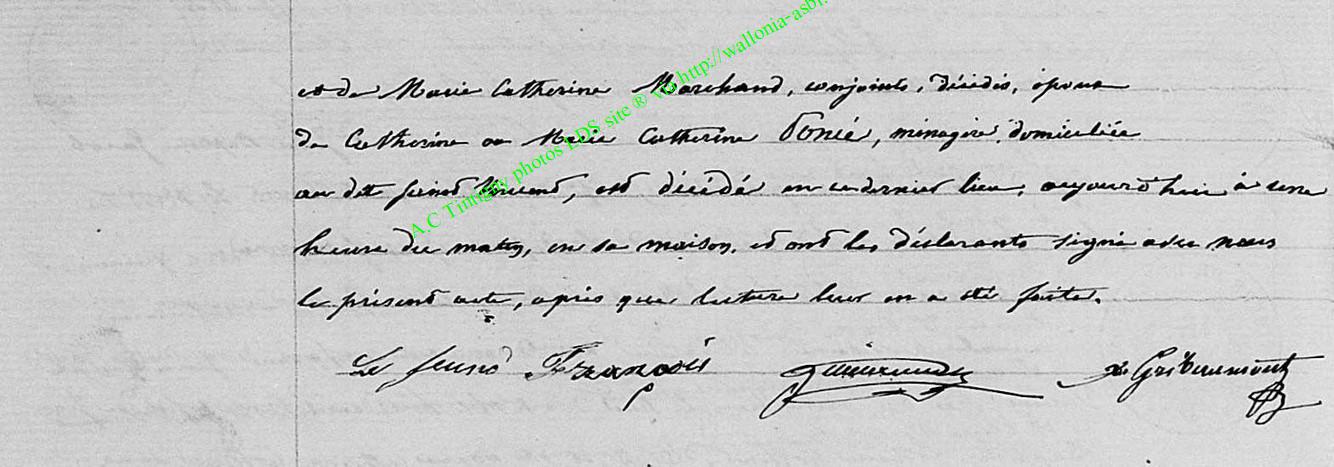 A.C Tintigny photos EDS site ® via http://wallonia-asbl
et de Marie Catherine Marchand, conjoints, décédés, époux
de Catherine ou Marie Catherine Poncé, ménagère, domiciliée
au dit Saint Vincent, est décédé en ce dernier lieu, aujourd'hui à une
heure du matin, en sa maison. et ont les déclarants signé avec nous
le présent acte, après que lecture leur en a été faite.
François Gribaumont